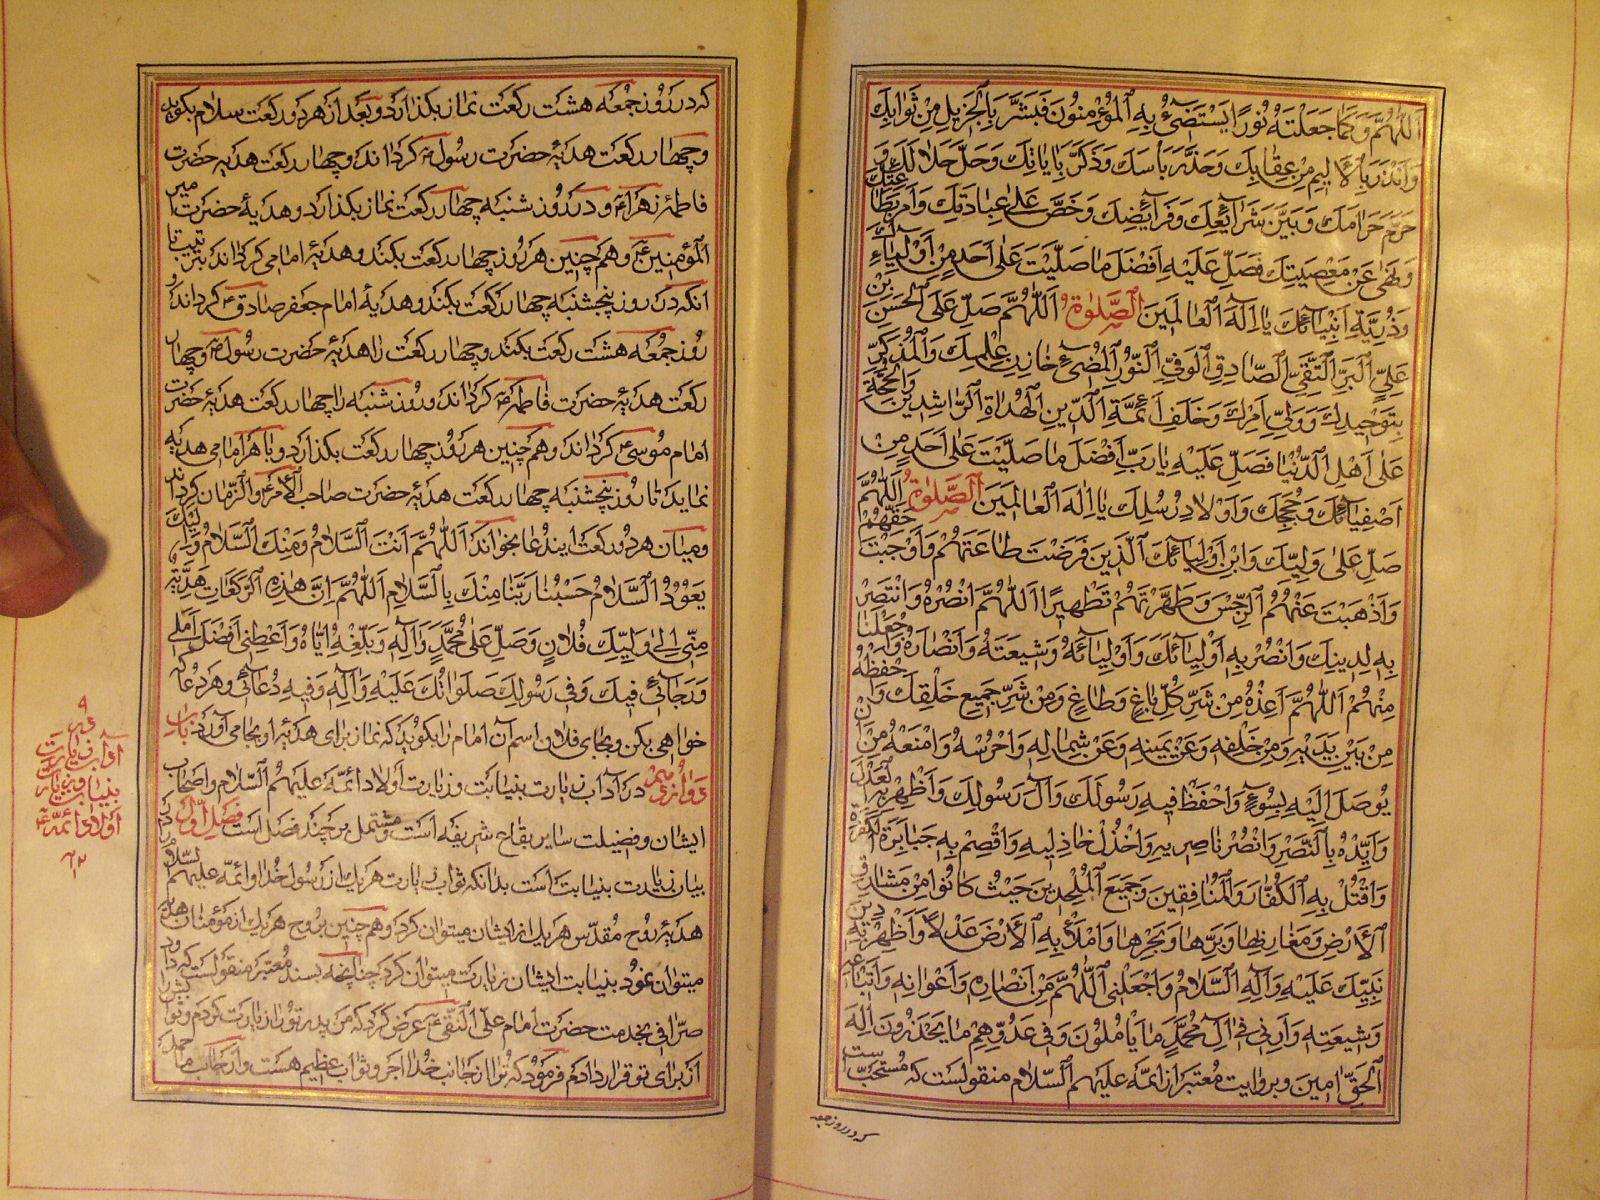 اَللّٰهُمَّ وَكَمَا جَعَلْتَهُ نُورًا يَسْتَضِيٓءُ بِهِ الْمُؤْمِنُونَ فَبَشَّرَ بِالْجَزِيلِ مِنْ ثَوَابِكَ
وَاَنْذَرَ بِالْاَلِيمِ مِنْ عِقَابِكَ وَحَذَّرَ بَأْسَكَ وَذَكَّرَ بِاٰيَاتِكَ وَحَلَّ حَلَالَكَ وَ
حَرَّمَ حَرَامَكَ وَبَيَّنَ شَرَآئِعَكَ وَفَرَآئِضَكَ وَحَضَّ عَلٰى عِبَادَتِكَ وَاَمَرَ بِطَاعَتِكَ
وَنَهٰى عَنْ مَعْصِيَتِكَ فَصَلِّ عَلَيْهِ اَفْضَلَ مَا صَلَّيْتَ عَلٰى اَحَدٍ مِنْ اَوْلِيَآءِكَ
وَذُرِّيَّةِ اَنْبِيَآئِكَ يَا اِلٰهَ الْعَالَمِينَ الصَّلٰوةُ اَللّٰهُمَّ صَلِّ عَلَى الْحَسَنِ بْنِ
عَلِيٍّ الْبَرِّ التَّقِيِّ الصَّادِقِ الْوَفِيِّ النُّورِ الْمُضِيٓءِ خَازِنِ عِلْمِكَ وَالْمُذَكِّرِ
بِتَوْحِيدِكَ وَوَلِيِّ اَمْرِكَ وَخَلَفِ اَئِمَّةِ الدِّينِ الْهُدَاةِ الرَّاشِدِينَ وَالْحُجَّةِ
عَلٰى اَهْلِ الدُّنْيَا فَصَلِّ عَلَيْهِ يَا رَبِّ اَفْضَلَ مَا صَلَّيْتَ عَلٰى اَحَدٍ مِنْ
اَصْفِيَآئِكَ وَحُجَجِكَ وَاَوْلَادِ رُسُلِكَ يَا اِلٰهَ الْعَالَمِينَ الصَّلٰوةُ اَللّٰهُمَّ
صَلِّ عَلٰى وَلِيِّكَ وَابْنِ اَوْلِيَآئِكَ الَّذِينَ فَرَضْتَ طَاعَتَهُمْ وَاَوْجَبْتَ حَقَّهُمْ
وَاَذْهَبْتَ عَنْهُمُ الرِّجْسَ وَطَهَّرْتَهُمْ تَطْهِيرًا اَللّٰهُمَّ انْصُرْهُ وَانْتَصِرْ
بِهِ لِدِينِكَ وَانْصُرْ بِهِ اَوْلِيَآئَكَ وَاَوْلِيَآئَهُ وَشِيعَتَهُ وَاَنْصَارَهُ وَاجْعَلْنَا
مِنْهُمْ اَللّٰهُمَّ اَعِذْهُ مِنْ شَرِّ كُلِّ بَاغٍ وَطَاغٍ وَمِنْ شَرِّ جَمِيعِ خَلْقِكَ وَاحْفَظْهُ
مِنْ بَيْنِ يَدَيْهِ وَمِنْ خَلْفِهِ وَعَنْ يَمِينِهِ وَعَنْ شِمَالِهِ وَاحْرُسْهُ وَامْنَعْهُ مِنْ اَنْ
يُوصَلَ اِلَيْهِ بِسُوٓءٍ وَاحْفَظْ فِيهِ رَسُولَكَ وَآلَ رَسُولِكَ وَاَظْهِرْ بِهِ الْعَدْلَ
وَاَيِّدْهُ بِالنَّصْرِ وَانْصُرْ نَاصِرِيهِ وَاخْذُلْ خَاذِلِيهِ وَاقْصِمْ بِهِ جَبَابِرَةَ الْكَفَرَةِ
وَاقْتُلْ بِهِ الْكُفَّارَ وَالْمُنَافِقِينَ وَجَمِيعَ الْمُلْحِدِينَ حَيْثُ كَانُوا مِنْ مَشَارِقِ
الْاَرْضِ وَمَغَارِبِهَا وَبَرِّهَا وَبَحْرِهَا وَامْلَأْ بِهِ الْاَرْضَ عَدْلًا وَاَظْهِرْ بِهِ دِينَ
نَبِيِّكَ عَلَيْهِ وَآلِهِ السَّلَامُ وَاجْعَلْنِي اللّٰهُمَّ مِنْ اَنْصَارِهِ وَاَعْوَانِهِ وَاَتْبَاعِهِ
وَشِيعَتِهِ وَاَرِنِي فِي آلِ مُحَمَّدٍ مَا يَأْمُلُونَ وَفِي عَدُوِّهِمْ مَا يَحْذَرُونَ اِلٰهَ
الْحَقِّ اٰمِينَ و بروايت معتبر از ائمه عليهم السلام منقولست كه مستحبّ است
كه در روز جمعه
كه در روز جمعه هشت ركعت نماز بكذارد و بعد از هر دو ركعت سلام بكويد
و چهار ركعت هديهٔ حضرت رسول ص كرداند و چهار ركعت هديهٔ حضرت
فاطمه زهرا ع و در روز شنبه چهار ركعت نماز بكذارد و هديهٔ حضرت امير
المؤمنين ع و هم چنين هر روز چهار ركعت بكند و هديهٔ امامى كرداند بترتيب تا
انكه در روز پنجشنبه چهار ركعت بكند و هديهٔ امام جعفر صادق ع كرداند و
روز جمعه هشت ركعت بكند و چهار ركعت را هديهٔ حضرت رسول ص و چهار
ركعت هديهٔ حضرت فاطمه ع كرداند و روز شنبه را چهار ركعت هديهٔ حضرت
امام موسى ع كرداند و هم چنين هر روز چهار ركعت بكذارد و با هر امامى هديه
نمايد تا روز پنجشنبه چهار ركعت هديهٔ حضرت صاحب الامر ع والزمان كرداند
و ميان هر دو ركعت ايندعا بخواند اَللّٰهُمَّ اَنْتَ السَّلَامُ وَمِنْكَ السَّلَامُ وَاِلَيْكَ
يَعُودُ السَّلَامُ حَيِّنَا رَبَّنَا مِنْكَ بِالسَّلَامِ اَللّٰهُمَّ اِنَّ هٰذِهِ الرَّكَعَاتِ هَدِيَّةٌ
مِنِّي اِلٰى وَلِيِّكَ فُلَانٍ وَصَلِّ عَلٰى مُحَمَّدٍ وَآلِهِ وَبَلِّغْهُ اِيَّاهُ وَاَعْطِنِي اَفْضَلَ اَمَلِي
وَرَجَآئِي فِيكَ وَفِي رَسُولِكَ صَلَوَاتُكَ عَلَيْهِ وَآلِهِ وَفِيهِ دُعَائِي و هر دعا كه
خواهى بكن و بجاى فلان اسم آن امام را بكويد كه نماز براى هديهٔ او بجا مى آورد باب
دوازدهم در آداب زيارت بنيابت و زيارت اولاد ائمه عليهم السلام و اصحاب
ايشان و فضيلت ساير بقاع شريفه است و مشتمل بر چند فصل است فصل اول در
بيان زيارت بنيابت است بدانكه ثواب زيارت هر يك از رسول خدا و ائمه عليهم السلام
هديهٔ روح مقدس هر يك از ايشان ميتوان كرد و هم چنين بروح هر يك از مؤمنان هديه
ميتوان نمود بنيابت ايشان زيارت ميتوان كرد چنانچه بسند معتبر منقولست كه داود
صرافى بخدمت حضرت امام على النقى ع عرض كرد كه من پدر تو را زيارت كردم و ثوابش را
از براى تو قرار دادم فرمود كه ترا از جانب خدا اجر و ثواب عظيم هست و از جانب ما حمد
آداب زيارت
بنيابت و زيارت
اولاد ائمه ع